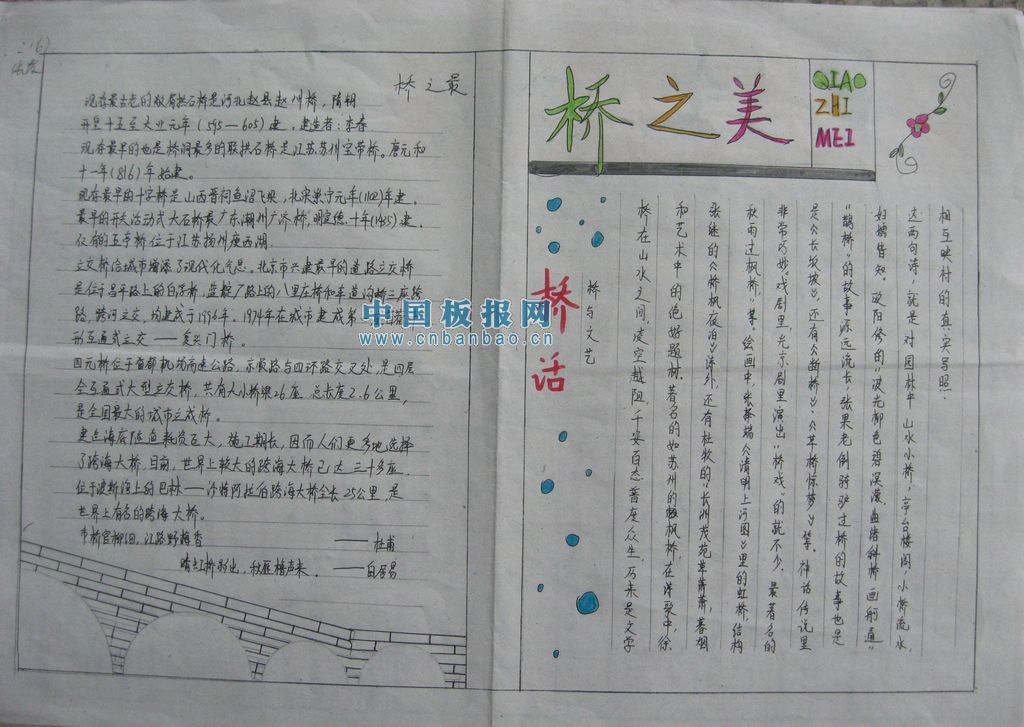 桥之最
现存最古老的敞肩拱石桥是河北赵县赵州桥，隋朝
开皇十五至大业元年（595—605）建，建造者：李春
现存最早的也是桥洞最多的联拱石桥是江苏苏州宝带桥。唐元和
十一年（816）年始建。
现存最早的十字桥是山西晋祠鱼沼飞梁，北宋崇宁元年（1102）年建。
最早的开关活动式大石桥是广东潮州广济桥，明宣德十年（1435）建。
仅有的五亭桥位于江苏扬州瘦西湖
立交桥给城市增添了现代化气息。北京市兴建最早的道路立交桥
是位于昌平路上的白浮桥，
路、跨河立交，均建成于1956年。1974年在城市建成第
形互通式立交——复兴门桥。
四元桥位于首都机场高速公路，京顺路与四环路交叉处，是四层
全互通式大型立交桥，共有大小桥梁26座，总长度2.6公里，
是全国最大的城市立成桥。
建造海底隧道耗资巨大，施工期长，因而人们更多地选择
了跨海大桥，目前，世界上较大的跨海大桥已达三十多座
位于波斯湾上的巴林——沙特阿拉伯跨海大桥全长25公里，是
世界上有名的跨海大桥。
市桥官柳细，江路野梅香 ——杜甫
晴虹桥影出，秋雁橹声来。——白居易
桥之美
QIAO
ZHI
MEI
桥话
桥与文艺
桥在山水之间，凌空越阻，千姿百态普度众生，历来是文学
和艺术中的绝好题材。著名的如苏州的枫桥，在诗歌中，除
张继的《枫桥夜泊》诗外，还有杜牧的“长洲茂苑草萧萧，暮烟
秋雨过枫桥”等。绘画中，张择端《清明上河图》里的虹桥，结构
非常巧妙。戏剧里，光京剧里演出“桥戏”的就不少，最著名的
是《长坂坡》，还有《断桥》、《草桥惊梦》等。神话传说里
“鹊桥”的故事源远流长，张果老倒骑驴过桥的故事也是
妇孺皆知。欧阳修的“波光柳色碧溟濛，曲渚斜桥画舸通”
这两句诗，就是对园林中山水小桥，亭台楼阁，小桥流水，
相互映衬的真实写照.
中国板报网
www.cnbanbao.cn